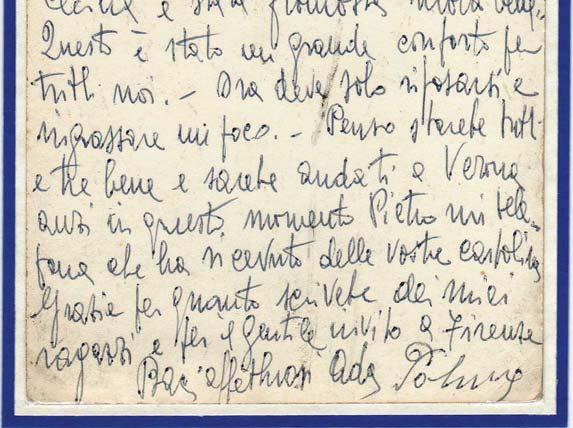 è stata promossa molto bene.
Questo è stato un grande conforto per
tutti noi. - Ora deve solo riposarsi e
ingrassare un poco. - Penso starete tutti
e tre bene e sarete andati a Verona
anzi in questo momento Pietro mi tele-
fona che ha ricevuto delle vostre cartoline
Grazie per quanto scrivete dei miei
ragazzi e per il gentile invito a Firenze
Baci affettuosi Ada